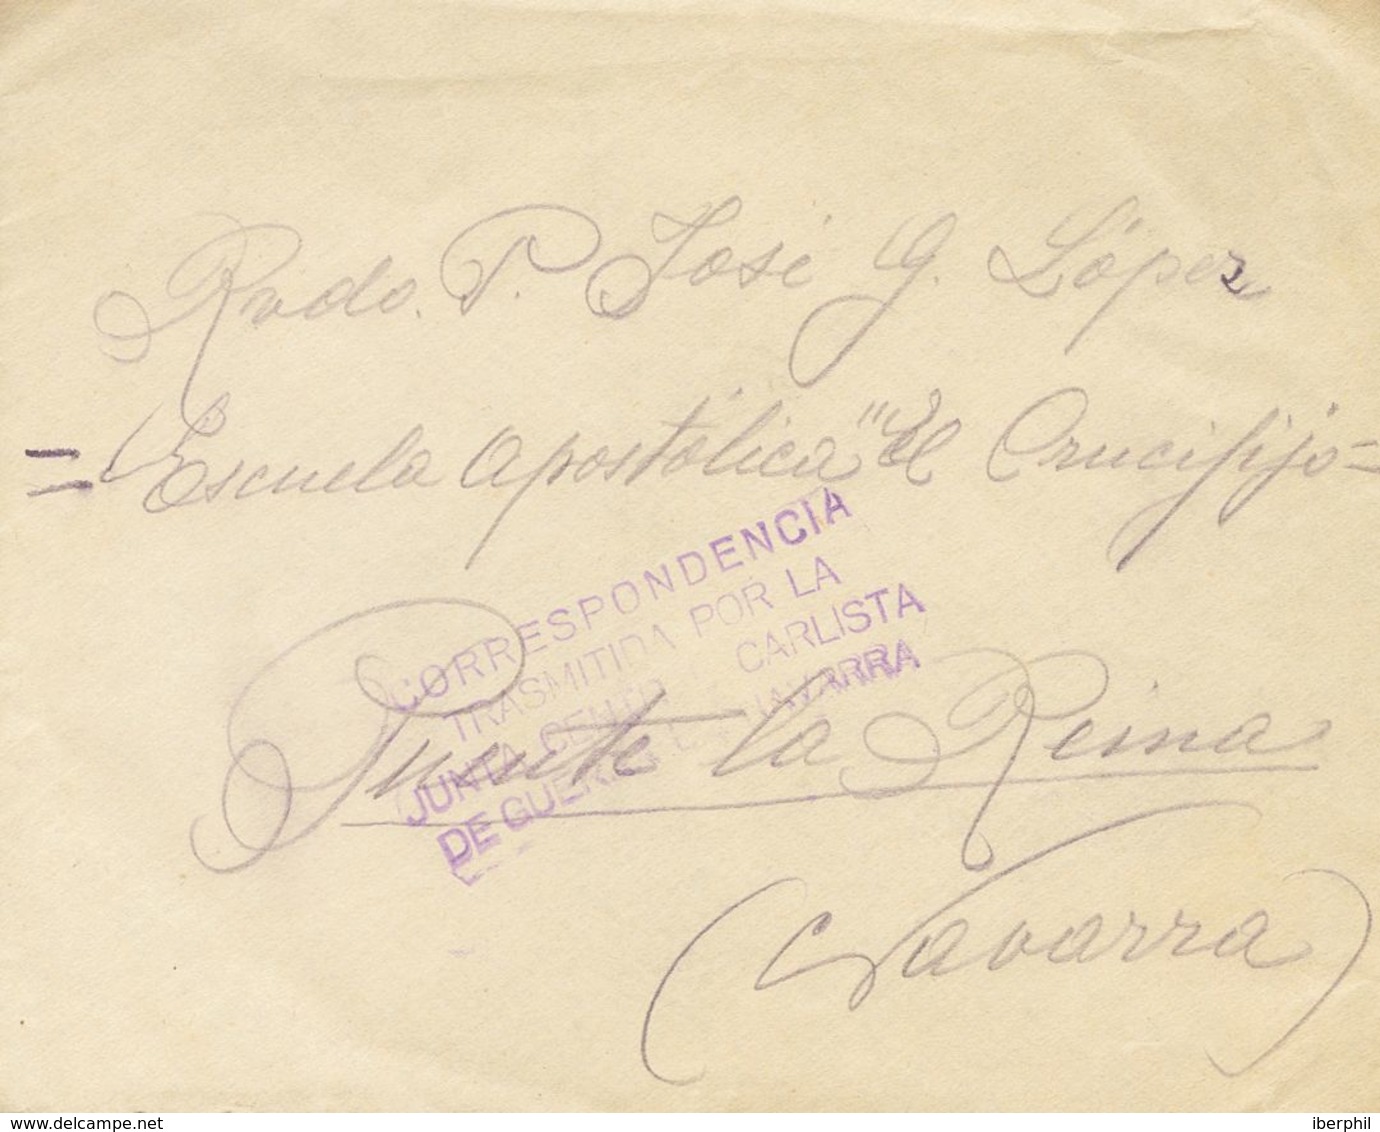 Rvdo. P. José G. López
= Escuela Apostólica "El Crucifijo =
CORRESPONDENCIA
TRASMITIDA POR LA
JUNTA CENTR CARLISTA
DE GUER NAVARRA
Puente la Reina
(Navarra)
www.delcampe.net
iberphil